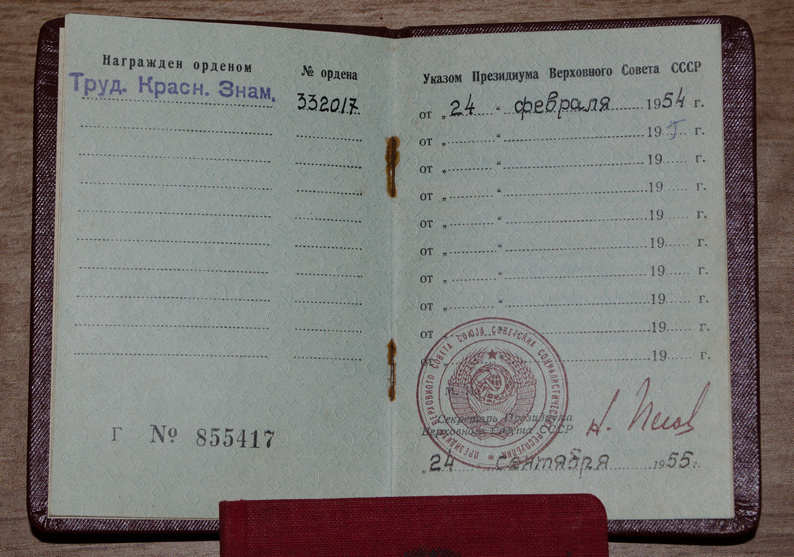 Награжден орденом
№ ордена
Труд. Красн. Знам.
332017
Г № 855417
Указом Президиума Верховного Совета СССР
от „ 24 “ февраля 1954 г.
от „ “ 195 г.
от „ “ 19 г.
от „ “ 19 г.
от „ “ 19 г.
от „ “ 19 г.
от „ “ 19 г.
от „ “ 19 г.
от „ 19 г.
от 19 г.
ПРЕЗИДИУМ ВЕРХОВНОГО СОВЕТА СОЮЗА СОВЕТСКИХ СОЦИАЛИСТИЧЕСКИХ РЕСПУБЛИК
М.
Секретарь Президиума
Верховного Совета СССР
Н. Пегов
„ 24 сентября 1955 г.